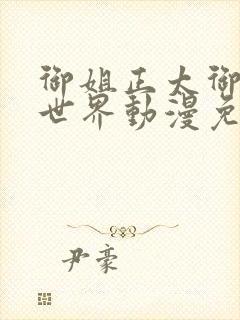 御姐正太御
世界動漫免
尹豪